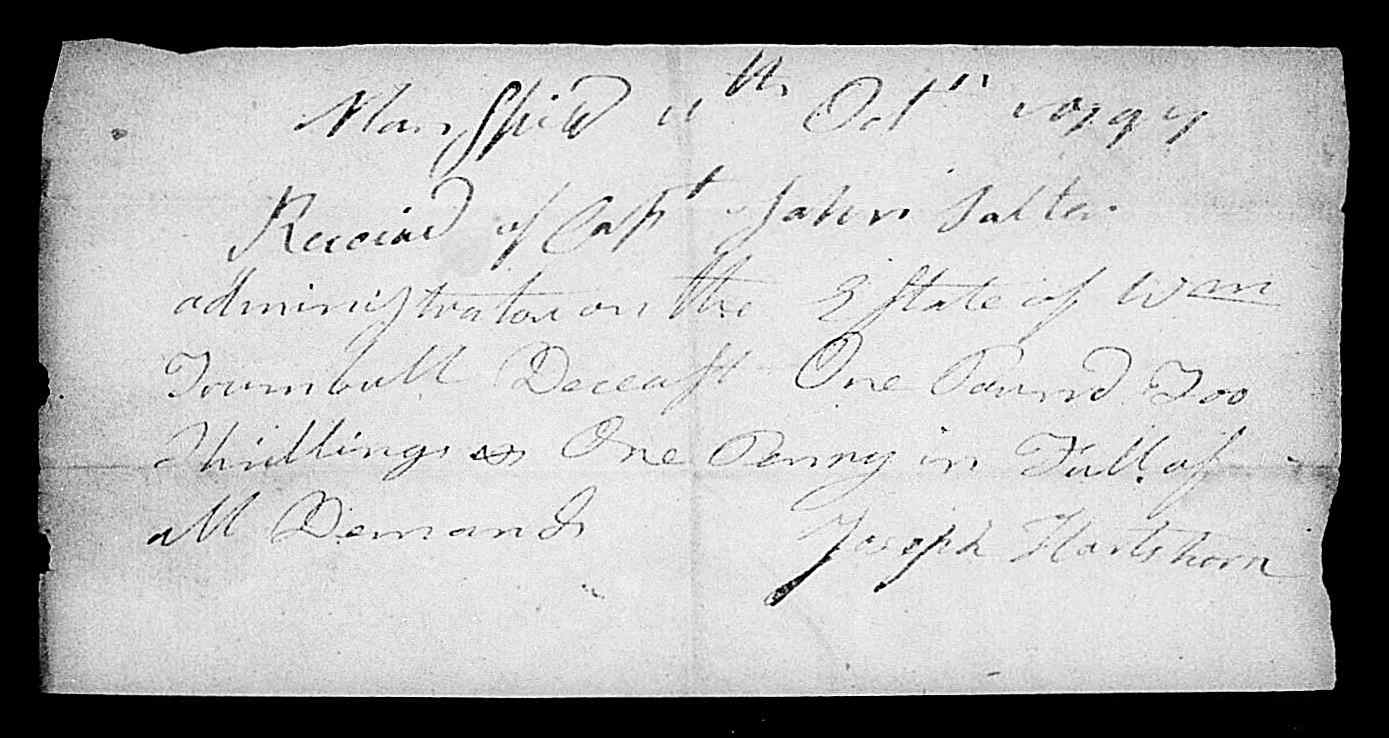 Mansfield 11th Octr 1797
Receiad of Capt John Salter
administrator on the Estate of Wm
Townbull Deceast One Pound Too
Shillings & One Penny in Full of
all Demands Joseph Hartshorn